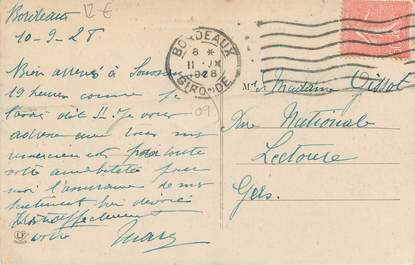 Bordeaux
12 €
10-9-28
Bien arrivés à
19 heures comme je
l'avais dit !! Je vous
adresse tous mes
remerciements pour toute
votre amabilité pour
moi l'assurance de mes
sentiment bien dévoués
affectueusement
votre
BORDEAUX
8 *
11 IX
1928
GIRONDE
09
Madame Vissot
Rue Nationale
Lectoure
Gers.